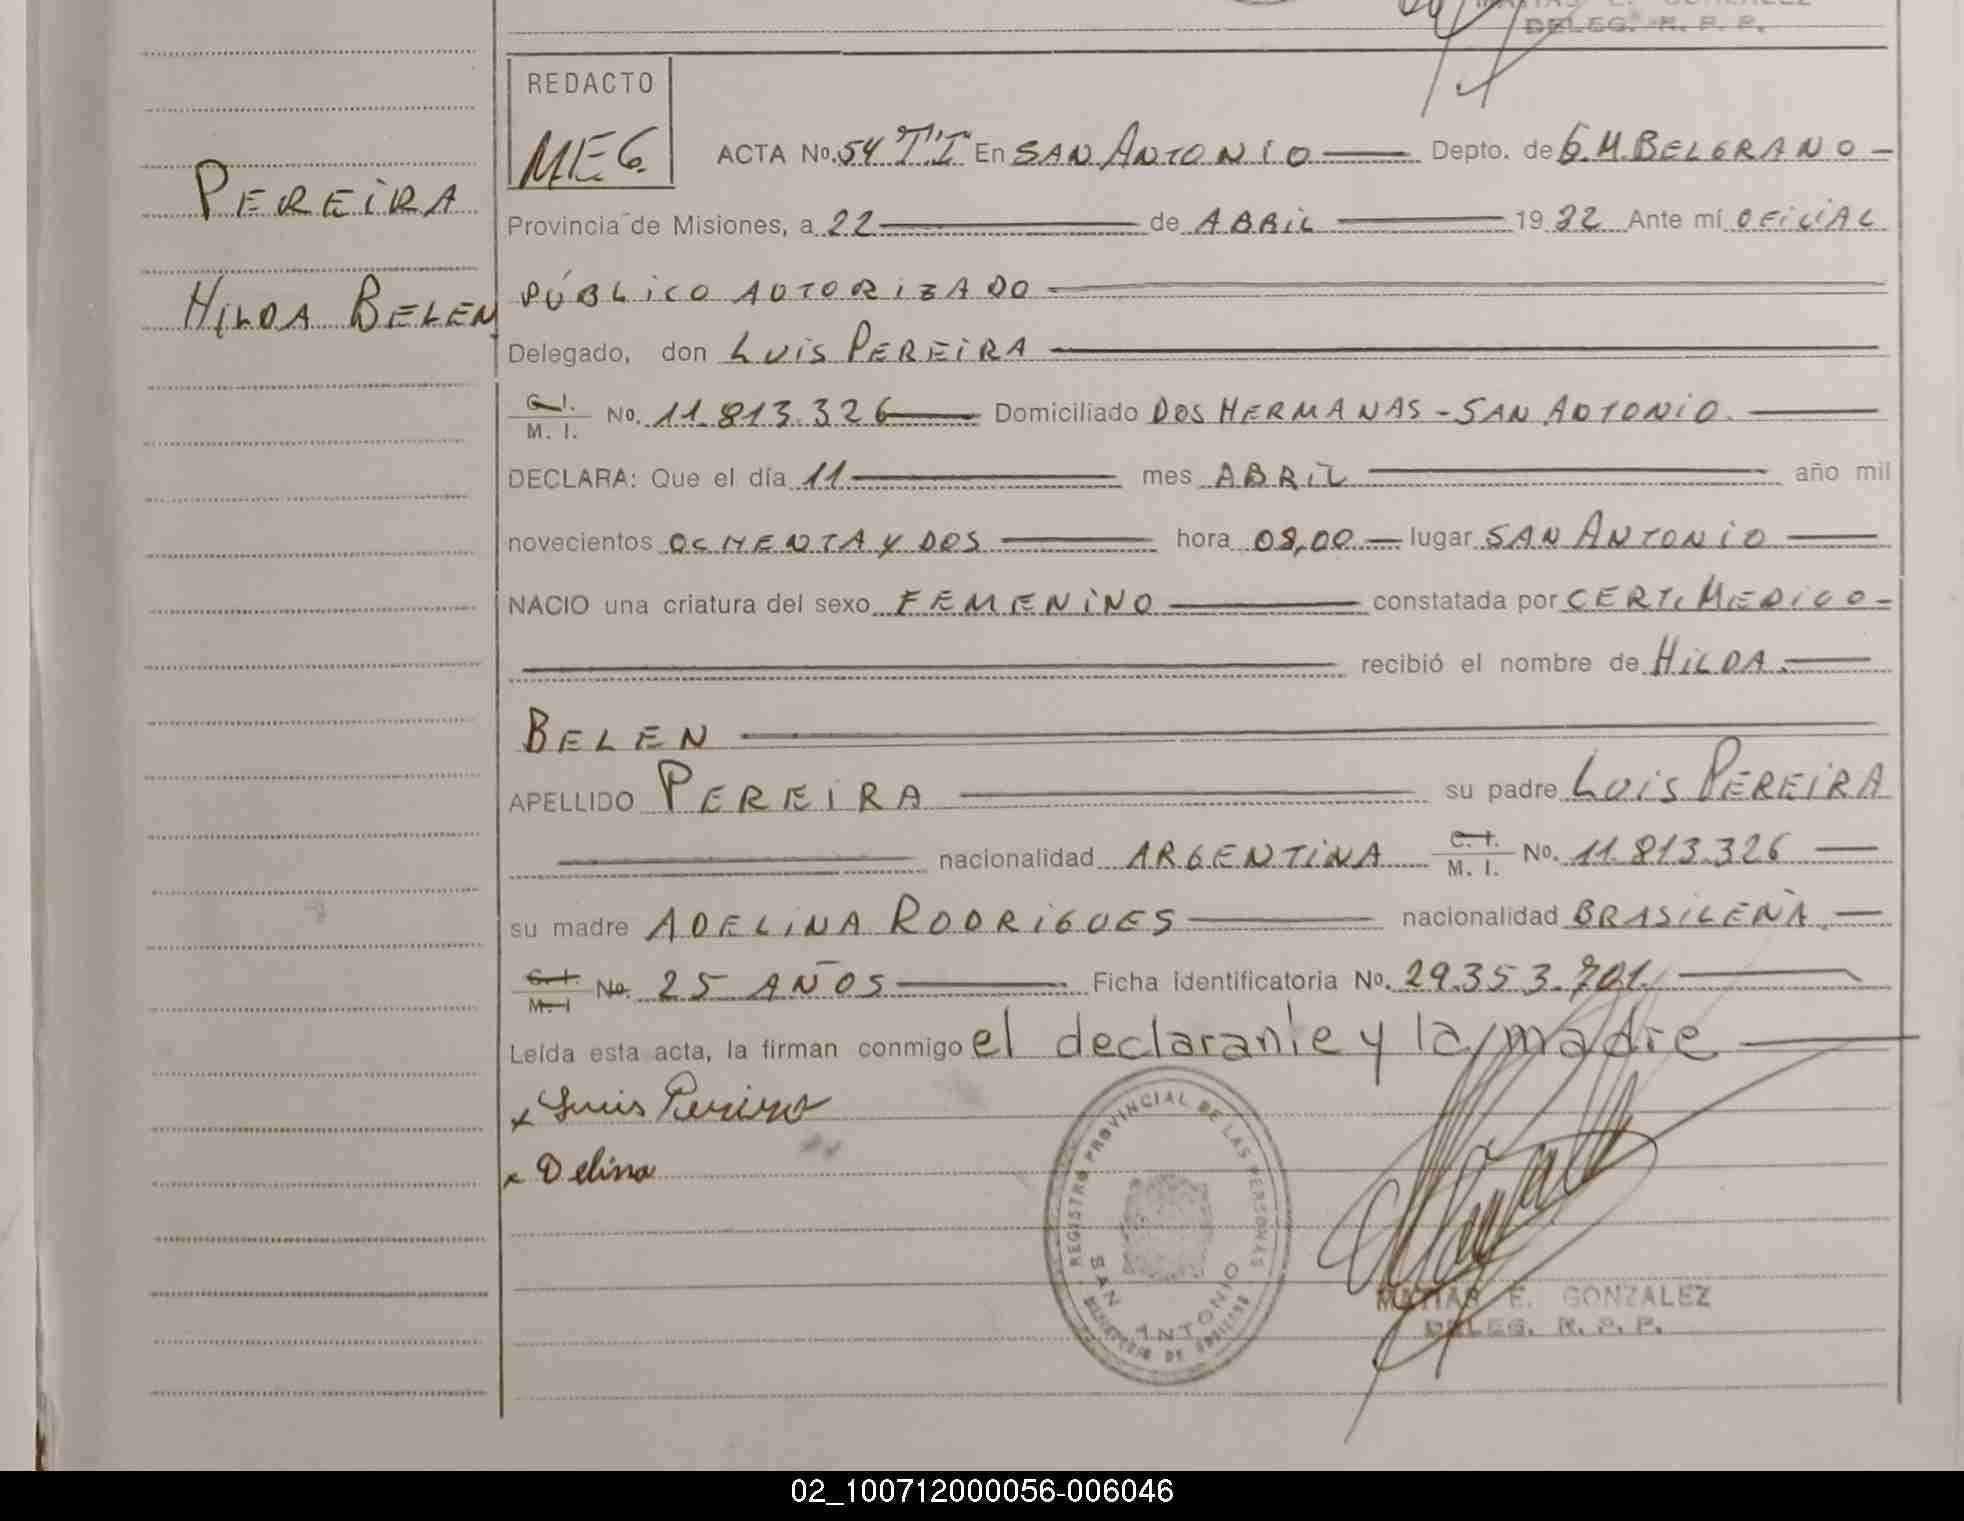 DELEG. R. P. P.
REDACTO
MEG.
ACTA No. 54 TºI En SAN ANTONIO Depto. de G.M. BELGRANO -
PEREIRA
Provincia de Misiones, a 22 de ABRIL 1982 Ante mí OFICIAL
HILDA BELEN
PÚBLICO AUTORIZADO
Delegado, don LUIS PEREIRA
C. I.
M. I. No. 11.813.326 Domiciliado DOS HERMANAS - SAN ANTONIO.
DECLARA: Que el día 11 mes ABRIL año mil
novecientos OCHENTA Y DOS hora 08,00 lugar SAN ANTONIO
NACIO una criatura del sexo FEMENINO constatada por CERT. MEDICO -
recibió el nombre de HILDA
BELEN
APELLIDO PEREIRA su padre LUIS PEREIRA
nacionalidad ARGENTINA C. I. M. I. No. 11.813.326
su madre ADELINA RODRIGUES nacionalidad BRASILEÑA
C. I. M. I No. 25 AÑOS Ficha identificatoria No. 29.353.701.
Leída esta acta, la firman conmigo el declarante y la madre
x Luis Pereira
x Delina
REGISTRO PROVINCIAL DE LAS PERSONAS
SAN ANTONIO
MATIAS E. GONZALEZ
DELEG. R. P. P.
02_100712000056-006046